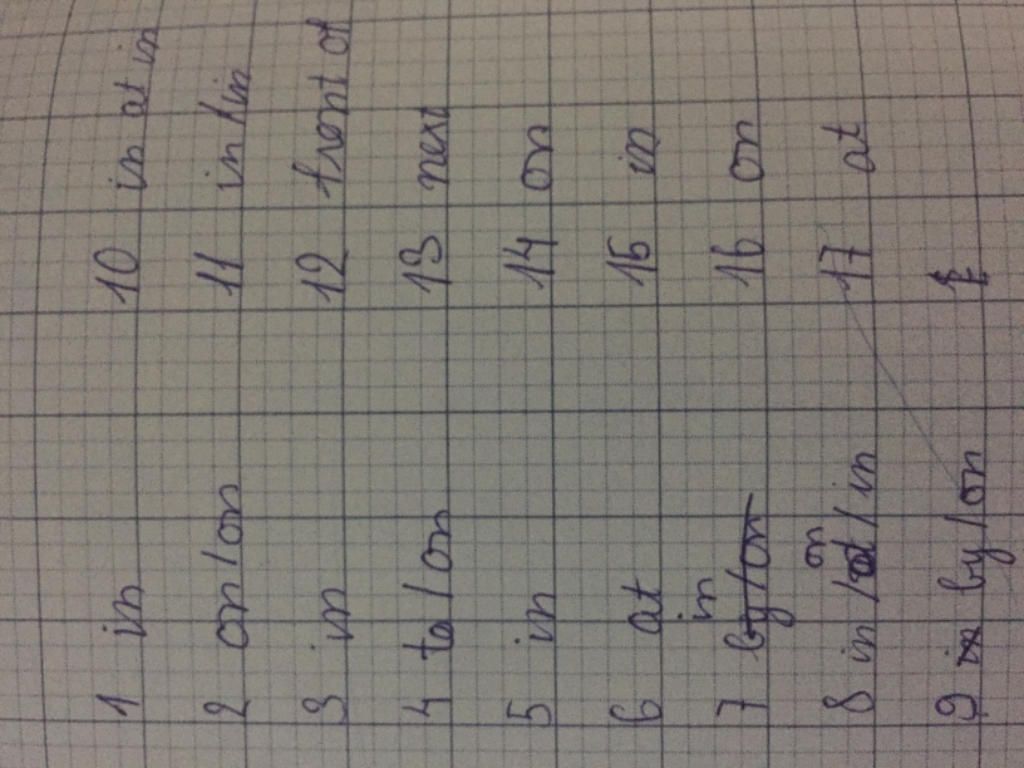 1 in
2 on/on
3 in
4 to/on
5 in
6 at
7 by/on in
8 in / at on / in
9 in by/on
10 in at in
11 in/in
12 front of
13 next
14 on
15 in
16 on
17 at